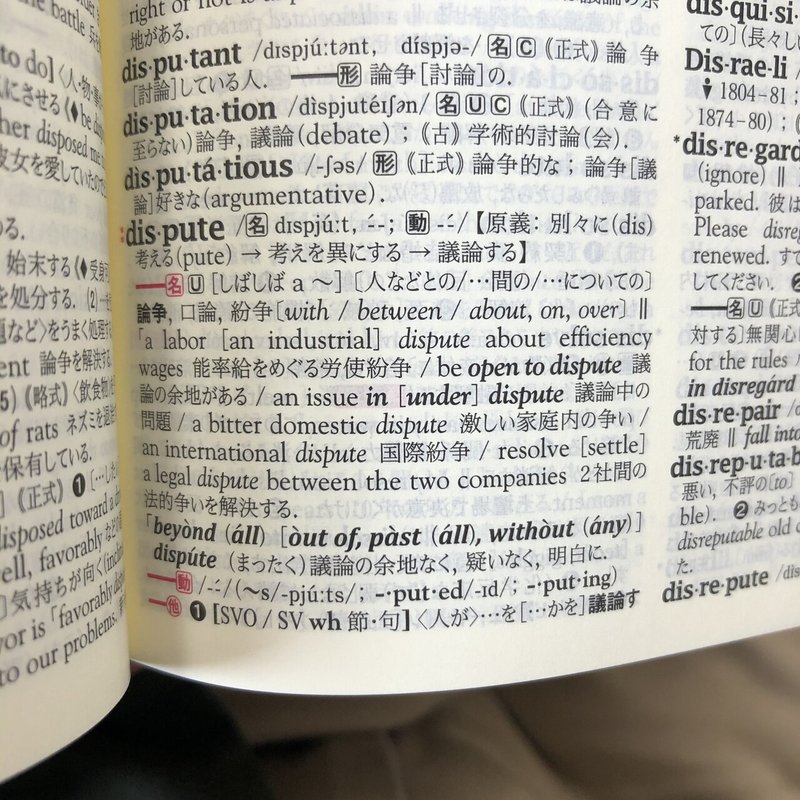 the battle
to do]
her disposed me
彼女を愛していたので
始末する
を処分する. (2)
ent 論争を解決する
(5) (略式) 〈飲食物〉を
of rats ネズミを退
保有している.
(正式) ❶
disposed toward a
well, favorably などの
気持ちが向く
yor is 「favorably
to our problems.
right or not is
地がある.
dis·pu·tant /dɪspjúːtənt, díspjə-/ 名 C (正式) 論争
[討論]している人. ━━形 論争[討論]の.
dis·pu·ta·tion /dìspjutéɪʃən/ 名 U C (正式) (合意に
至らない)論争, 議論(debate) ; (古) 学術的討論(会).
dis·pu·tá·tious /-ʃəs/ 形 (正式) 論争的な ; 論争[議
論]好きな(argumentative).
dis·pute /名 dɪspjúːt, ⸗́-; 動 -⸗́/【原義 : 別々に(dis)
考える(pute) → 考えを異にする → 議論する】
━名 U [しばしば a ～] 〔人などとの/…間の/…についての〕
論争, 口論, 紛争〔with / between / about, on, over〕‖
「a labor [an industrial] dispute about efficiency
wages 能率給をめぐる労使紛争 / be open to dispute 議
論の余地がある / an issue in [under] dispute 議論中の
問題 / a bitter domestic dispute 激しい家庭内の争い /
an international dispute 国際紛争 / resolve [settle]
a legal dispute between the two companies 2社間の
法的争いを解決する.
「beyònd (áll) [òut of, pàst (áll), withòut (ány)]
dispúte (まったく)議論の余地なく, 疑いなく, 明白に.
━動 /-⸗́/ (～s/-pjúːts/ ; -·put·ed/-ɪd/ ; -·put·ing)
━他 ❶ [SVO / SV wh 節・句]〈人が〉…を[…かを]議論す
dis·qui·si·
ての] (長々しい
Dis·rae·li
1804-81 ;
1874-80) ;
*dis·re·gard
(ignore) ‖
parked. 彼は
Please disreg
renewed. すで
してください. ❷
━名 U (正式
対する]無関心
for the rules
in disregárd
dis·re·pair
荒廃 ‖ fall into
dis·rep·u·ta·b
悪い, 不評の[to]
ble). ❷ みっとも
disreputable old
た.
dis·re·pute